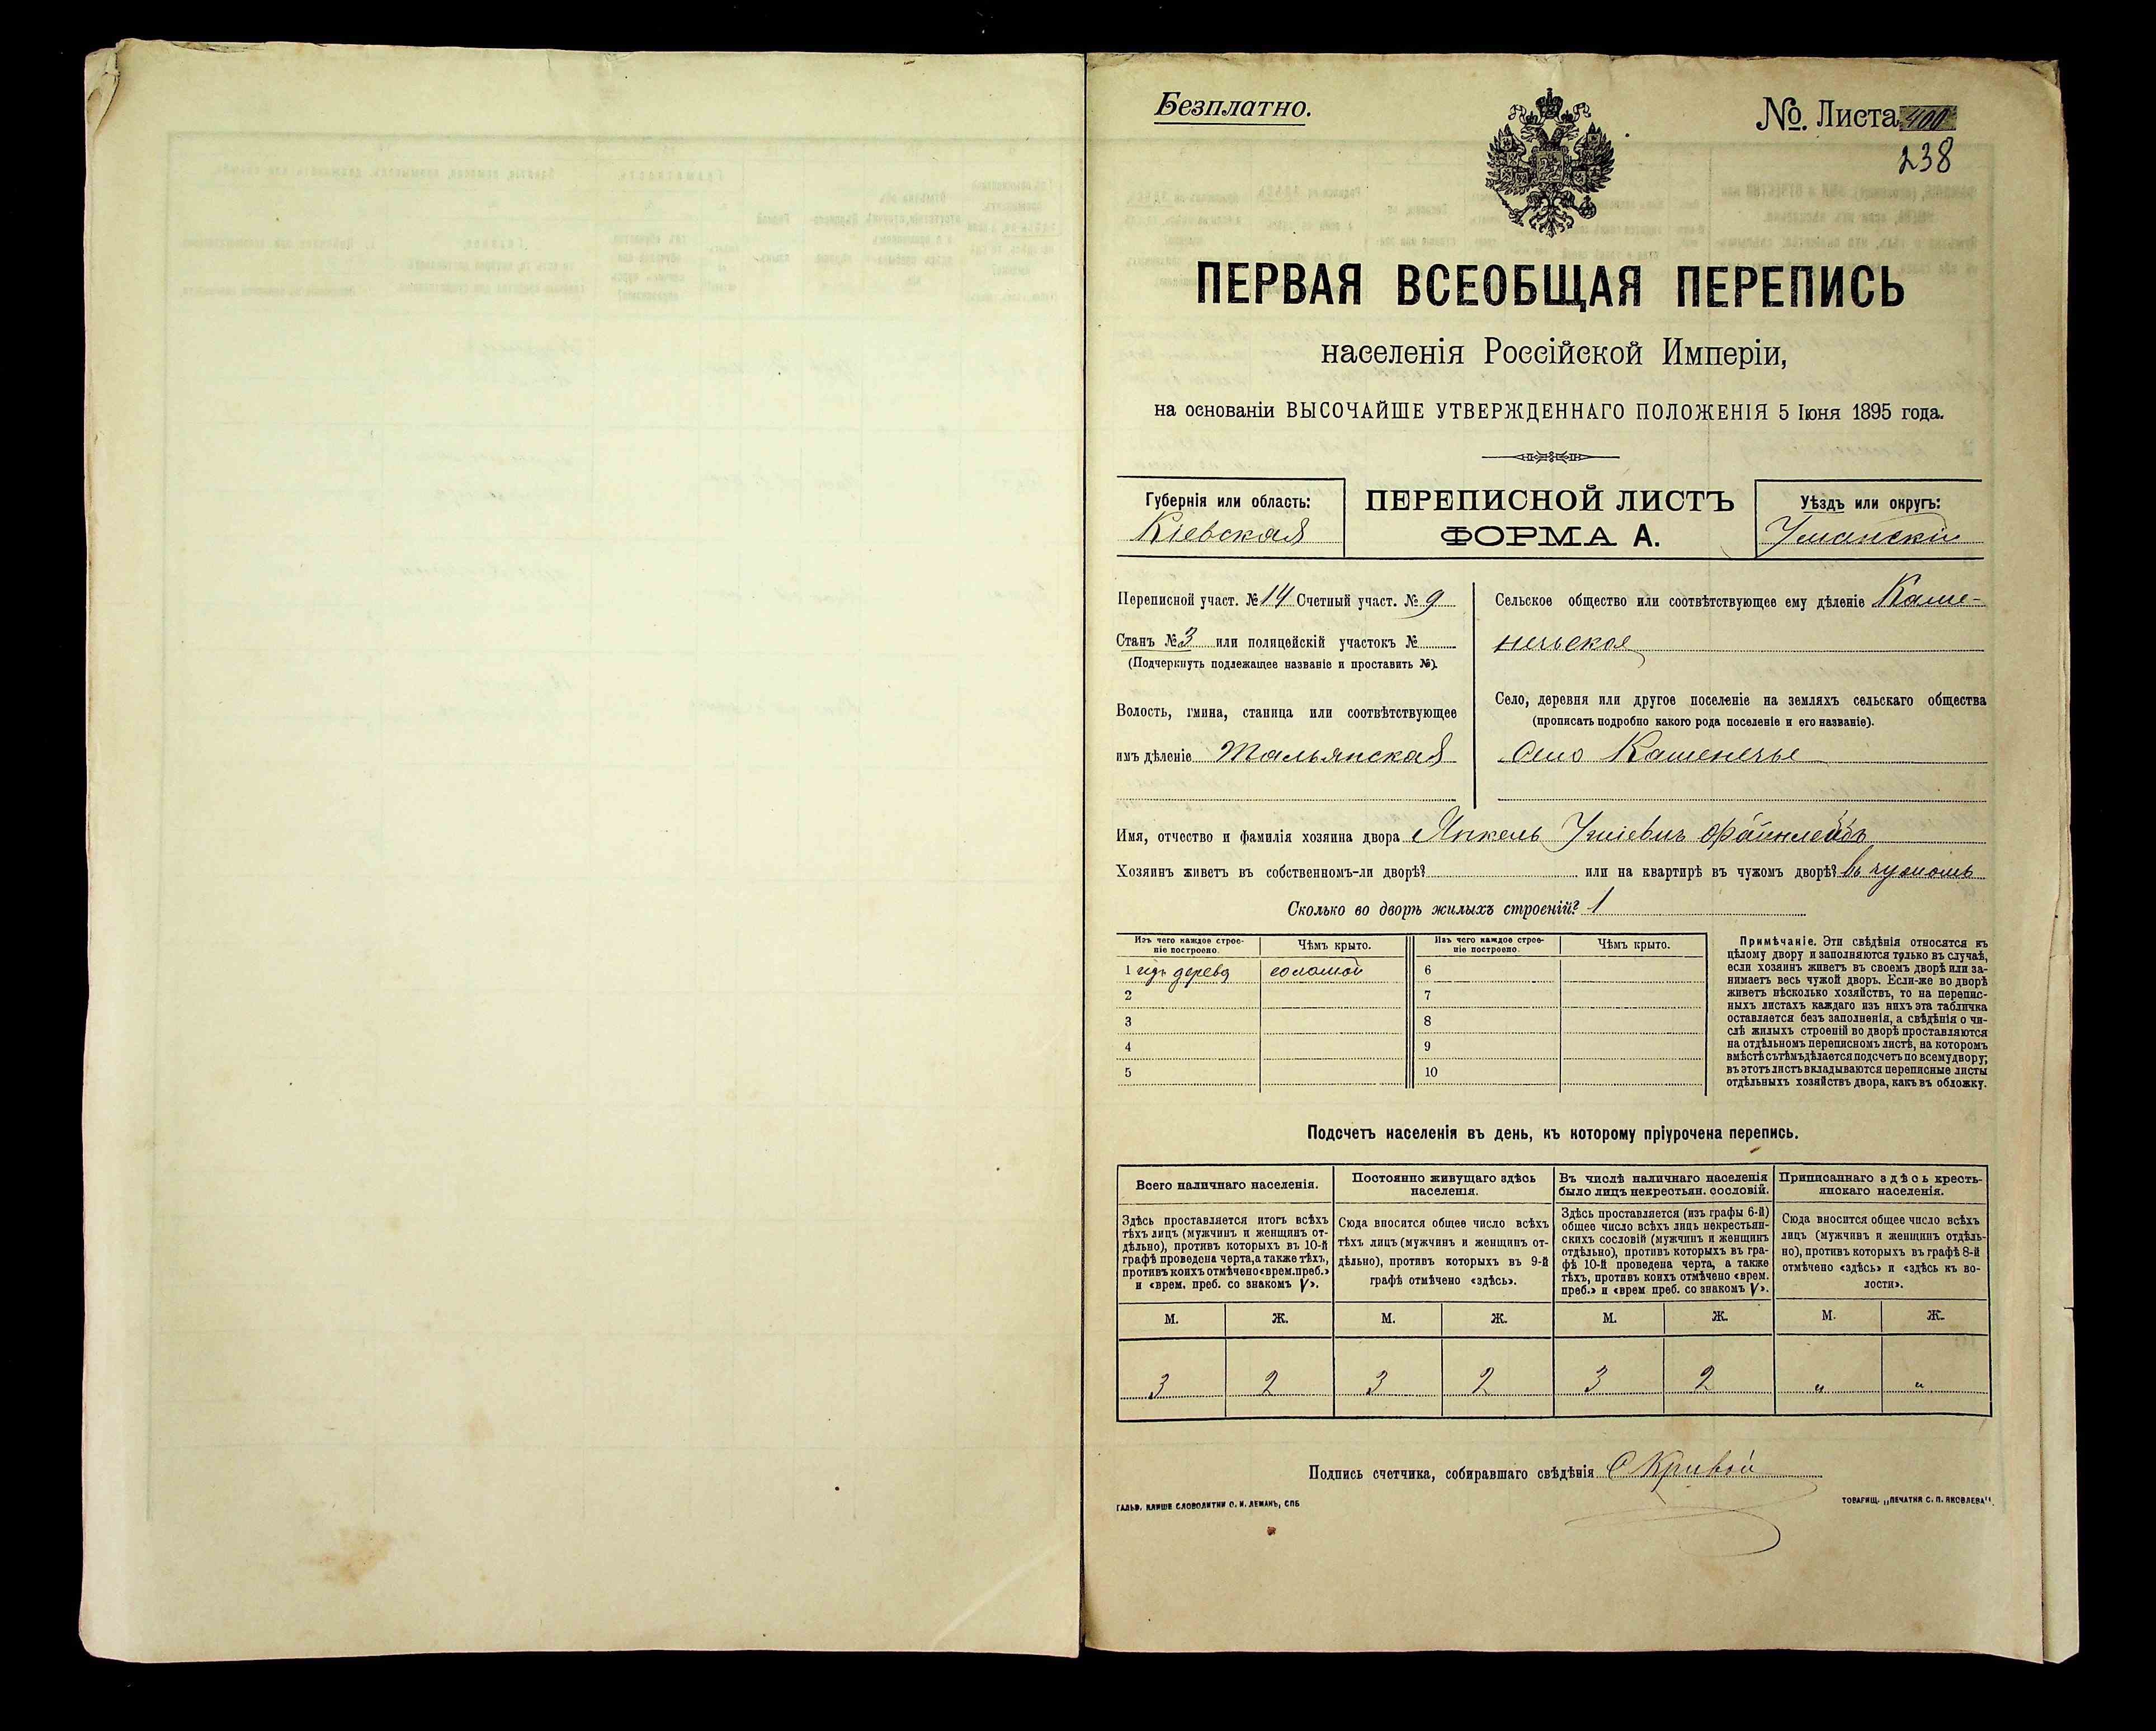 Безплатно.
№. Листа 400
238
ПЕРВАЯ ВСЕОБЩАЯ ПЕРЕПИСЬ
населенія Россійской Имперіи,
на основаніи ВЫСОЧАЙШЕ УТВЕРЖДЕННАГО ПОЛОЖЕНІЯ 5 Іюня 1895 года.
Губернія или область:
Кіевская
ПЕРЕПИСНОЙ ЛИСТЪ
ФОРМА А.
Уѣздъ или округъ:
Уманскій
Переписной участ. № 14 Счетный участ. № 9
Станъ № 3 или полицейскій участокъ №
(Подчеркнуть подлежащее названіе и проставить №).
Волость, гмина, станица или соотвѣтствующее
имъ дѣленіе Тальянская
Сельское общество или соотвѣтствующее ему дѣленіе Каме-
нечьское
Село, деревня или другое поселеніе на земляхъ сельскаго общества
(прописать подробно какого рода поселеніе и его названіе).
село Каменечье
Имя, отчество и фамилія хозяина двора Янкель
Хозяинъ живетъ въ собственномъ-ли дворѣ? или на квартирѣ въ чужомъ дворѣ? въ чужомъ
Сколько во дворѣ жилыхъ строеній? 1
Изъ чего каждое строе-
ніе построено.
Чѣмъ крыто.
Изъ чего каждое строе-
ніе построено.
Чѣмъ крыто.
1 изъ дерева соломой 6
2 7
3 8
4 9
5 10
Примѣчаніе. Эти свѣдѣнія относятся къ
цѣлому двору и заполняются только въ случаѣ,
если хозяинъ живетъ въ своемъ дворѣ или за-
нимаетъ весь чужой дворъ. Если-же во дворѣ
живетъ нѣсколько хозяйствъ, то на перепис-
ныхъ листахъ каждаго изъ нихъ эта табличка
оставляется безъ заполненія, а свѣдѣнія о чи-
слѣ жилыхъ строеній во дворѣ проставляются
на отдѣльномъ переписномъ листѣ, на которомъ
вмѣстѣ съ тѣмъ дѣлается подсчетъ по всему двору;
въ этотъ листъ вкладываются переписные листы
отдѣльныхъ хозяйствъ двора, какъ въ обложку.
Подсчетъ населенія въ день, къ которому пріурочена перепись.
Всего наличнаго населенія.
Здѣсь проставляется итогъ всѣхъ
тѣхъ лицъ (мужчинъ и женщинъ от-
дѣльно), противъ которыхъ въ 10-й
графѣ проведена черта, а также тѣхъ,
противъ коихъ отмѣчено «врем. преб.»
и «врем. преб. со знакомъ V».
Постоянно живущаго здѣсь
населенія.
Сюда вносится общее число всѣхъ
тѣхъ лицъ (мужчинъ и женщинъ от-
дѣльно), противъ которыхъ въ 9-й
графѣ отмѣчено «здѣсь».
Въ числѣ наличнаго населенія
было лицъ некрестьян. сословій.
Здѣсь проставляется (изъ графы 6-й)
общее число всѣхъ лицъ некрестьян-
скихъ сословій (мужчинъ и женщинъ
отдѣльно), противъ которыхъ въ гра-
фѣ 10-й проведена черта, а также
тѣхъ, противъ коихъ отмѣчено «врем.
преб.» и «врем преб. со знакомъ V».
Приписаннаго здѣсь кресть-
янскаго населенія.
Сюда вносится общее число всѣхъ
лицъ (мужчинъ и женщинъ отдѣль-
но), противъ которыхъ въ графѣ 8-й
отмѣчено «здѣсь» и «здѣсь къ во-
лости».
М. Ж. М. Ж. М. Ж. М. Ж.
3 2 3 2 3 2 „ „
Подпись счетчика, собиравшаго свѣдѣнія С Кривой
ГАЛЬВ. КЛИШЕ СЛОВОЛИТНИ О. И. ЛЕМАНЪ, СПБ
ТОВАРИЩ. „ПЕЧАТНЯ С. П. ЯКОВЛЕВА".